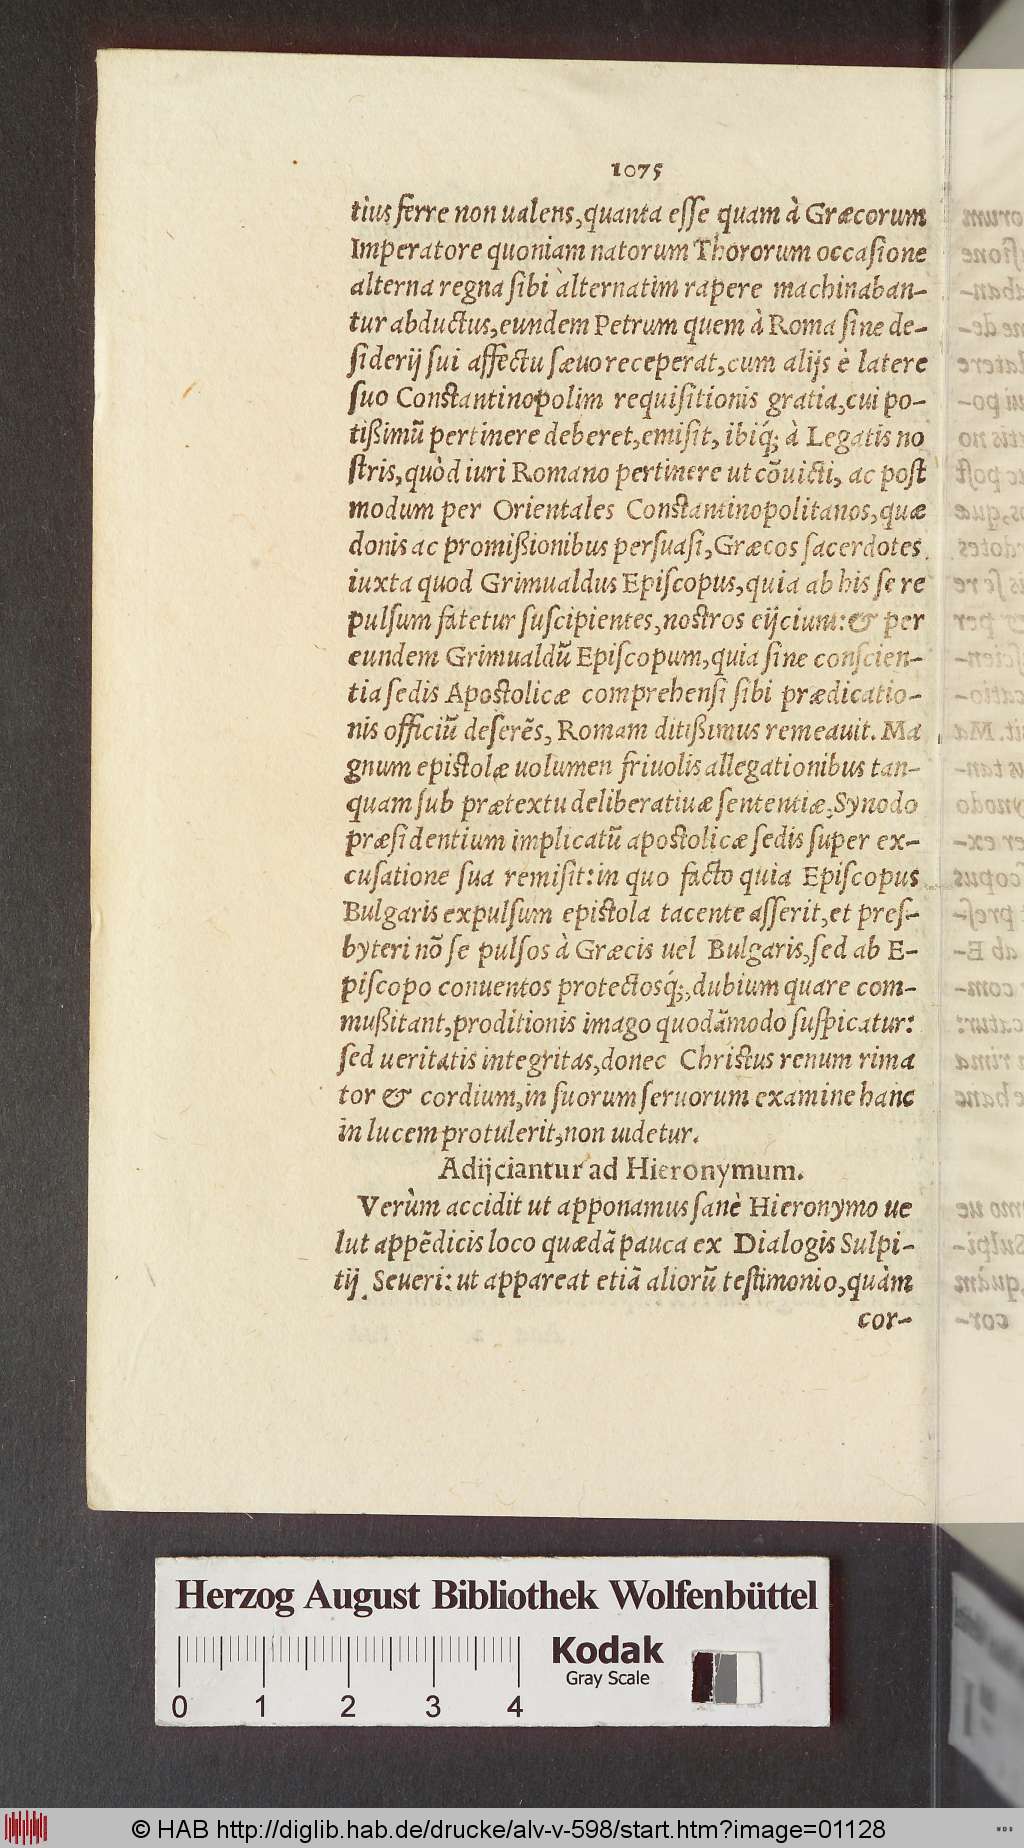 1075
tius ferre non ualens, quanta esse quam à Græcorum
Imperatore quoniam natorum Thororum occasione
alterna regna sibi àlternatim rapere machinaban-
tur abductus, eundem Petrum quem à Roma sine de-
siderij sui affectu sæuo receperat, cum alijs è latere
suo Constantinopolim requisitionis gratia, cui po-
tißimũ pertinere deberet, emisit, ibiq́; à Legatis no
stris, quòd iuri Romano pertinere ut cõuicti, ac post
modum per Orientales Constantinopolitanos, quæ
donis ac promißionibus persuasi, Græcos sacerdotes
iuxta quod Grimualdus Episcopus, quia ab his se re
pulsum fatetur suscipientes, nostros eijciunt: & per
eundem Grimualdũ Episcopum, quia sine conscien-
tia sedis Apostolicæ comprehensi sibi prædicatio-
nis officiũ deserẽs, Romam ditißimus remeauit. Ma
gnum epistolæ uolumen friuolis allegationibus tan-
quam sub prætextu deliberatiuæ sententiæ, Synodo
præsidentium implicatũ apostolicæ sedis super ex-
cusatione sua remisit: in quo facto quia Episcopus
Bulgaris expulsum epistola tacente asserit, et pres-
byteri nõ se pulsos à Græcis uel Bulgaris, sed ab E-
piscopo conuentos protectosq́;, dubium quare com-
mußitant, proditionis imago quodãmodo suspicatur:
sed ueritatis integritas, donec Christus renum rima
tor & cordium, in suorum seruorum examine hanc
in lucem protulerit, non uidetur.
Adijciantur ad Hieronymum.
Verùm accidit ut apponamus sanè Hieronymo ue
lut appẽdicis loco quædã pauca ex Dialogis Sulpi-
tij Seueri: ut appareat etiã aliorũ testimonio, quàm
cor-
Herzog August Bibliothek Wolfenbüttel
Kodak
Gray Scale
0 1 2 3 4
© HAB http://diglib.hab.de/drucke/alv-v-598/start.htm?image=01128